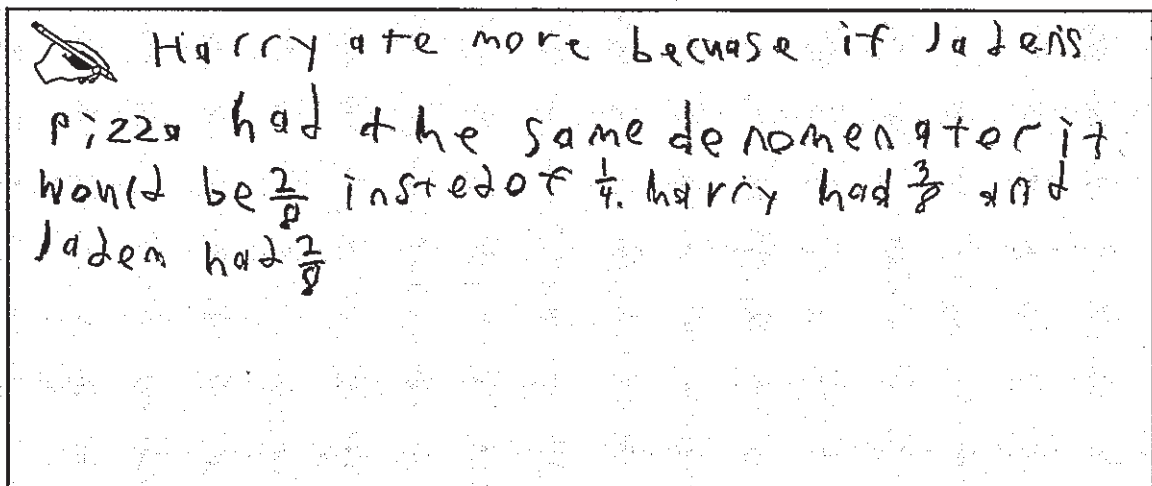 Harry ate more becuase if Jadens
pizza had the same denomenator it
would be 2/8 insted of 1/4. harry had 3/8 and
Jaden had 2/8